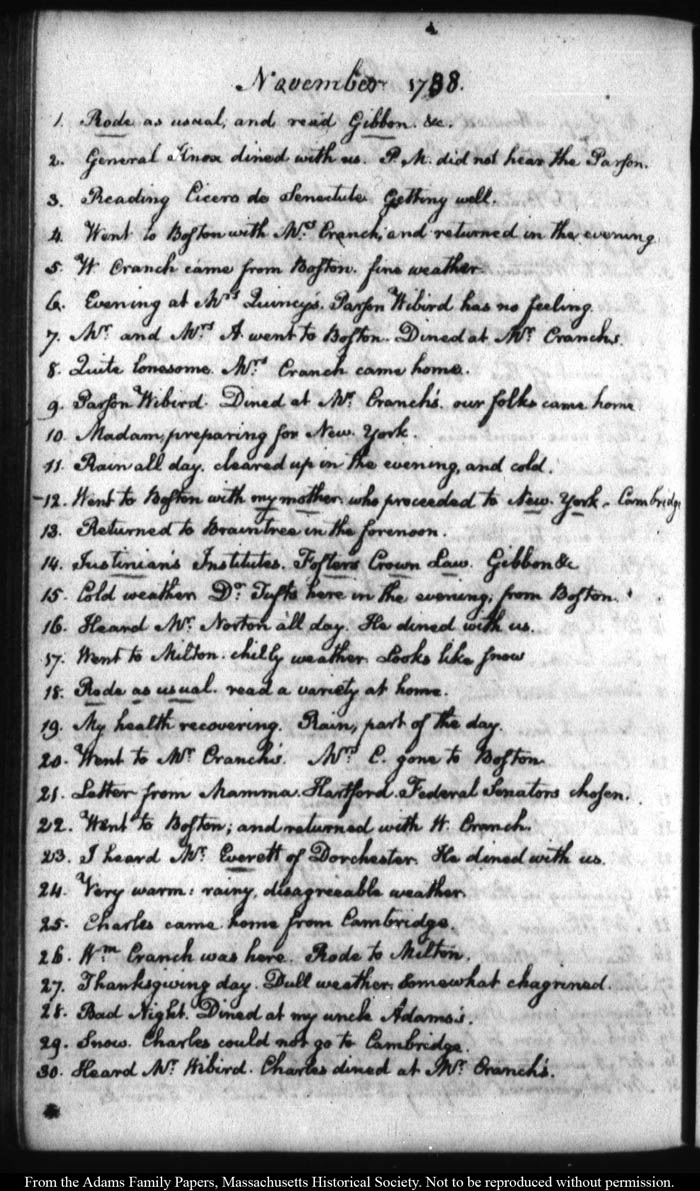 November 1788.
1. Rode as usual, and read Gibbon. &c.
2. General Knox dined with us. P.M. did not hear the Parson.
3. Reading Cicero de Senectute. Getting well.
4. Went to Boston with Mrs. Cranch, and returned in the evening
5. W. Cranch came from Boston. fine weather.
6. Evening at Mrs. Quincy's. Parson Wibird has no feeling.
7. Mr. and Mrs. A. went to Boston. Dined at Mr. Cranch's.
8. Quite lonesome. Mrs. Cranch came home.
9. Parson Wibird. Dined at Mr. Cranch's. our folks came home.
10. Madam, preparing for New. York.
11. Rain all day. cleared up in the evening, and cold.
-12. Went to Boston with my mother. who proceeded to New. York. Cambridge
13. Returned to Braintree in the forenoon.
14. Justinian's Institutes. Foster's Crown Law. Gibbon &c
15. Cold weather. Dr. Tufts here in the evening, from Boston.
16. Heard Mr. Norton all day. He dined with us.
17. Went to Milton. chilly weather. Looks like snow
18. Rode as usual. read a variety at home.
19. My health recovering. Rain, part of the day.
20. Went to Mr. Cranch's. Mrs. C. gone to Boston
21. Letter from Mamma. Hartford. Federal Senators chosen.
22. Went to Boston; and returned with W. Cranch.
23. I heard Mr. Everett of Dorchester. He dined with us.
24. Very warm: rainy, disagreeable weather.
25. Charles came home from Cambridge.
26. Wm. Cranch was here. Rode to Milton.
27. Thanksgiving day. Dull weather. Somewhat chagrined.
28. Bad Night. Dined at my uncle Adams's.
29. Snow. Charles could not go to Cambridge.
30. Heard Mr. Wibird. Charles dined at Mr. Cranch's.
From the Adams Family Papers, Massachusetts Historical Society. Not to be reproduced without permission.